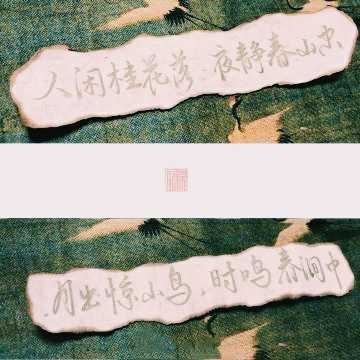 人闲桂花落.夜静春山空
月出惊山鸟.时鸣春涧中